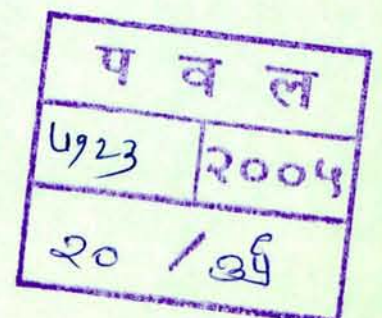 प व ल
५१२३ २००५
२० / ३५